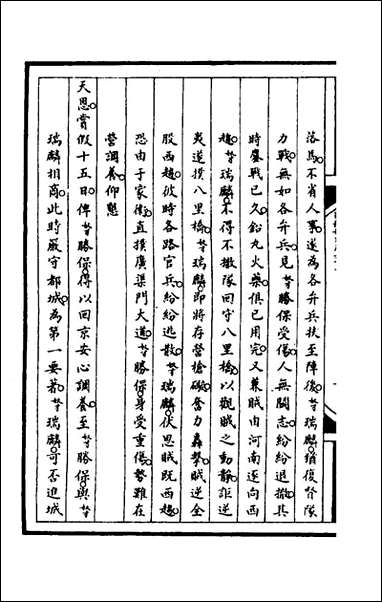 落馬不省人事遂為各弁兵扶至陣後奴才瑞麟猶復督隊
力戰無如各弁兵見奴才勝保受傷人無鬭志紛紛退撤其
時鏖戰已久鉛丸火藥俱已用完又兼賊由河南逐向西
趨奴才瑞麟不得不撤隊回守八里橋以觀賊之動靜詎逆
夷逕撲八里橋奴才瑞麟即將存營槍礮奮力轟擊賊逆全
股西趨彼時各路官兵紛紛逃散奴才瑞麟伏思賊既西趨
恐由于家衛直撲廣渠門大道奴才勝保身受重傷勢難在
營調養仰懇
天恩賞假十五日俾奴才勝保得以回京安心調養至奴才勝保與奴才
瑞麟相商此時嚴守都城為第一要著奴才瑞麟可否進城